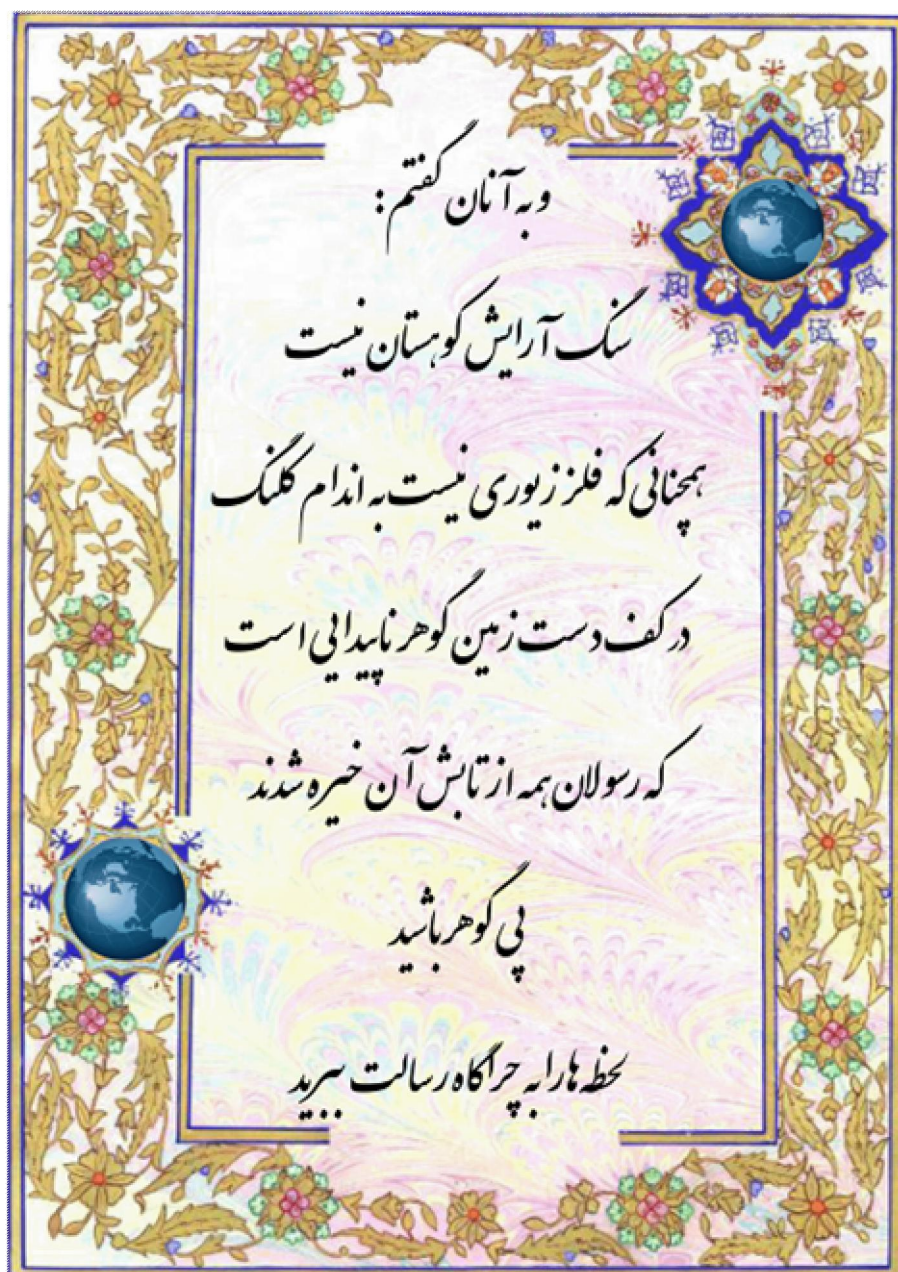 و به آنان گفتم :
سنگ آرایش کوهستان نیست
همچنانی که فلز زیوری نیست به اندام کلنگ
در کف دست زمین گوهر ناپیدایی است
که رسولان همه از تابش آن خیره شدند
پی گوهر باشید
لحظه ها را به چراگاه رسالت ببرید